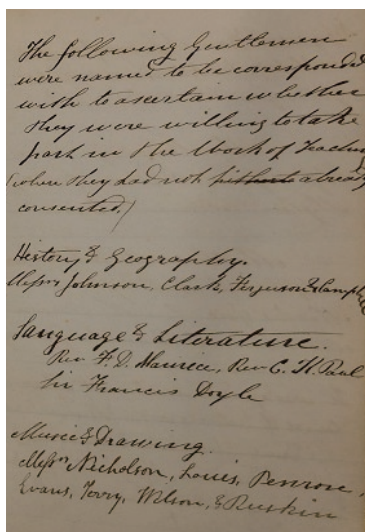 The following Gentlemen
were named to be corresponded
with to ascertain whether
they were willing to take
part in the Work of Teaching
(where they had not hitherto already
consented.)
History & Geography.
Messrs Johnson, Clark, Ferguson & Campbell
Language & Literature.
Rev F. D. Maurice, Rev C. K. Paul
Sir Francis Doyle
Music & Drawing.
Messrs Nicholson, Louis, Penrose,
Evans, Terry, Wilson, & Ruskin